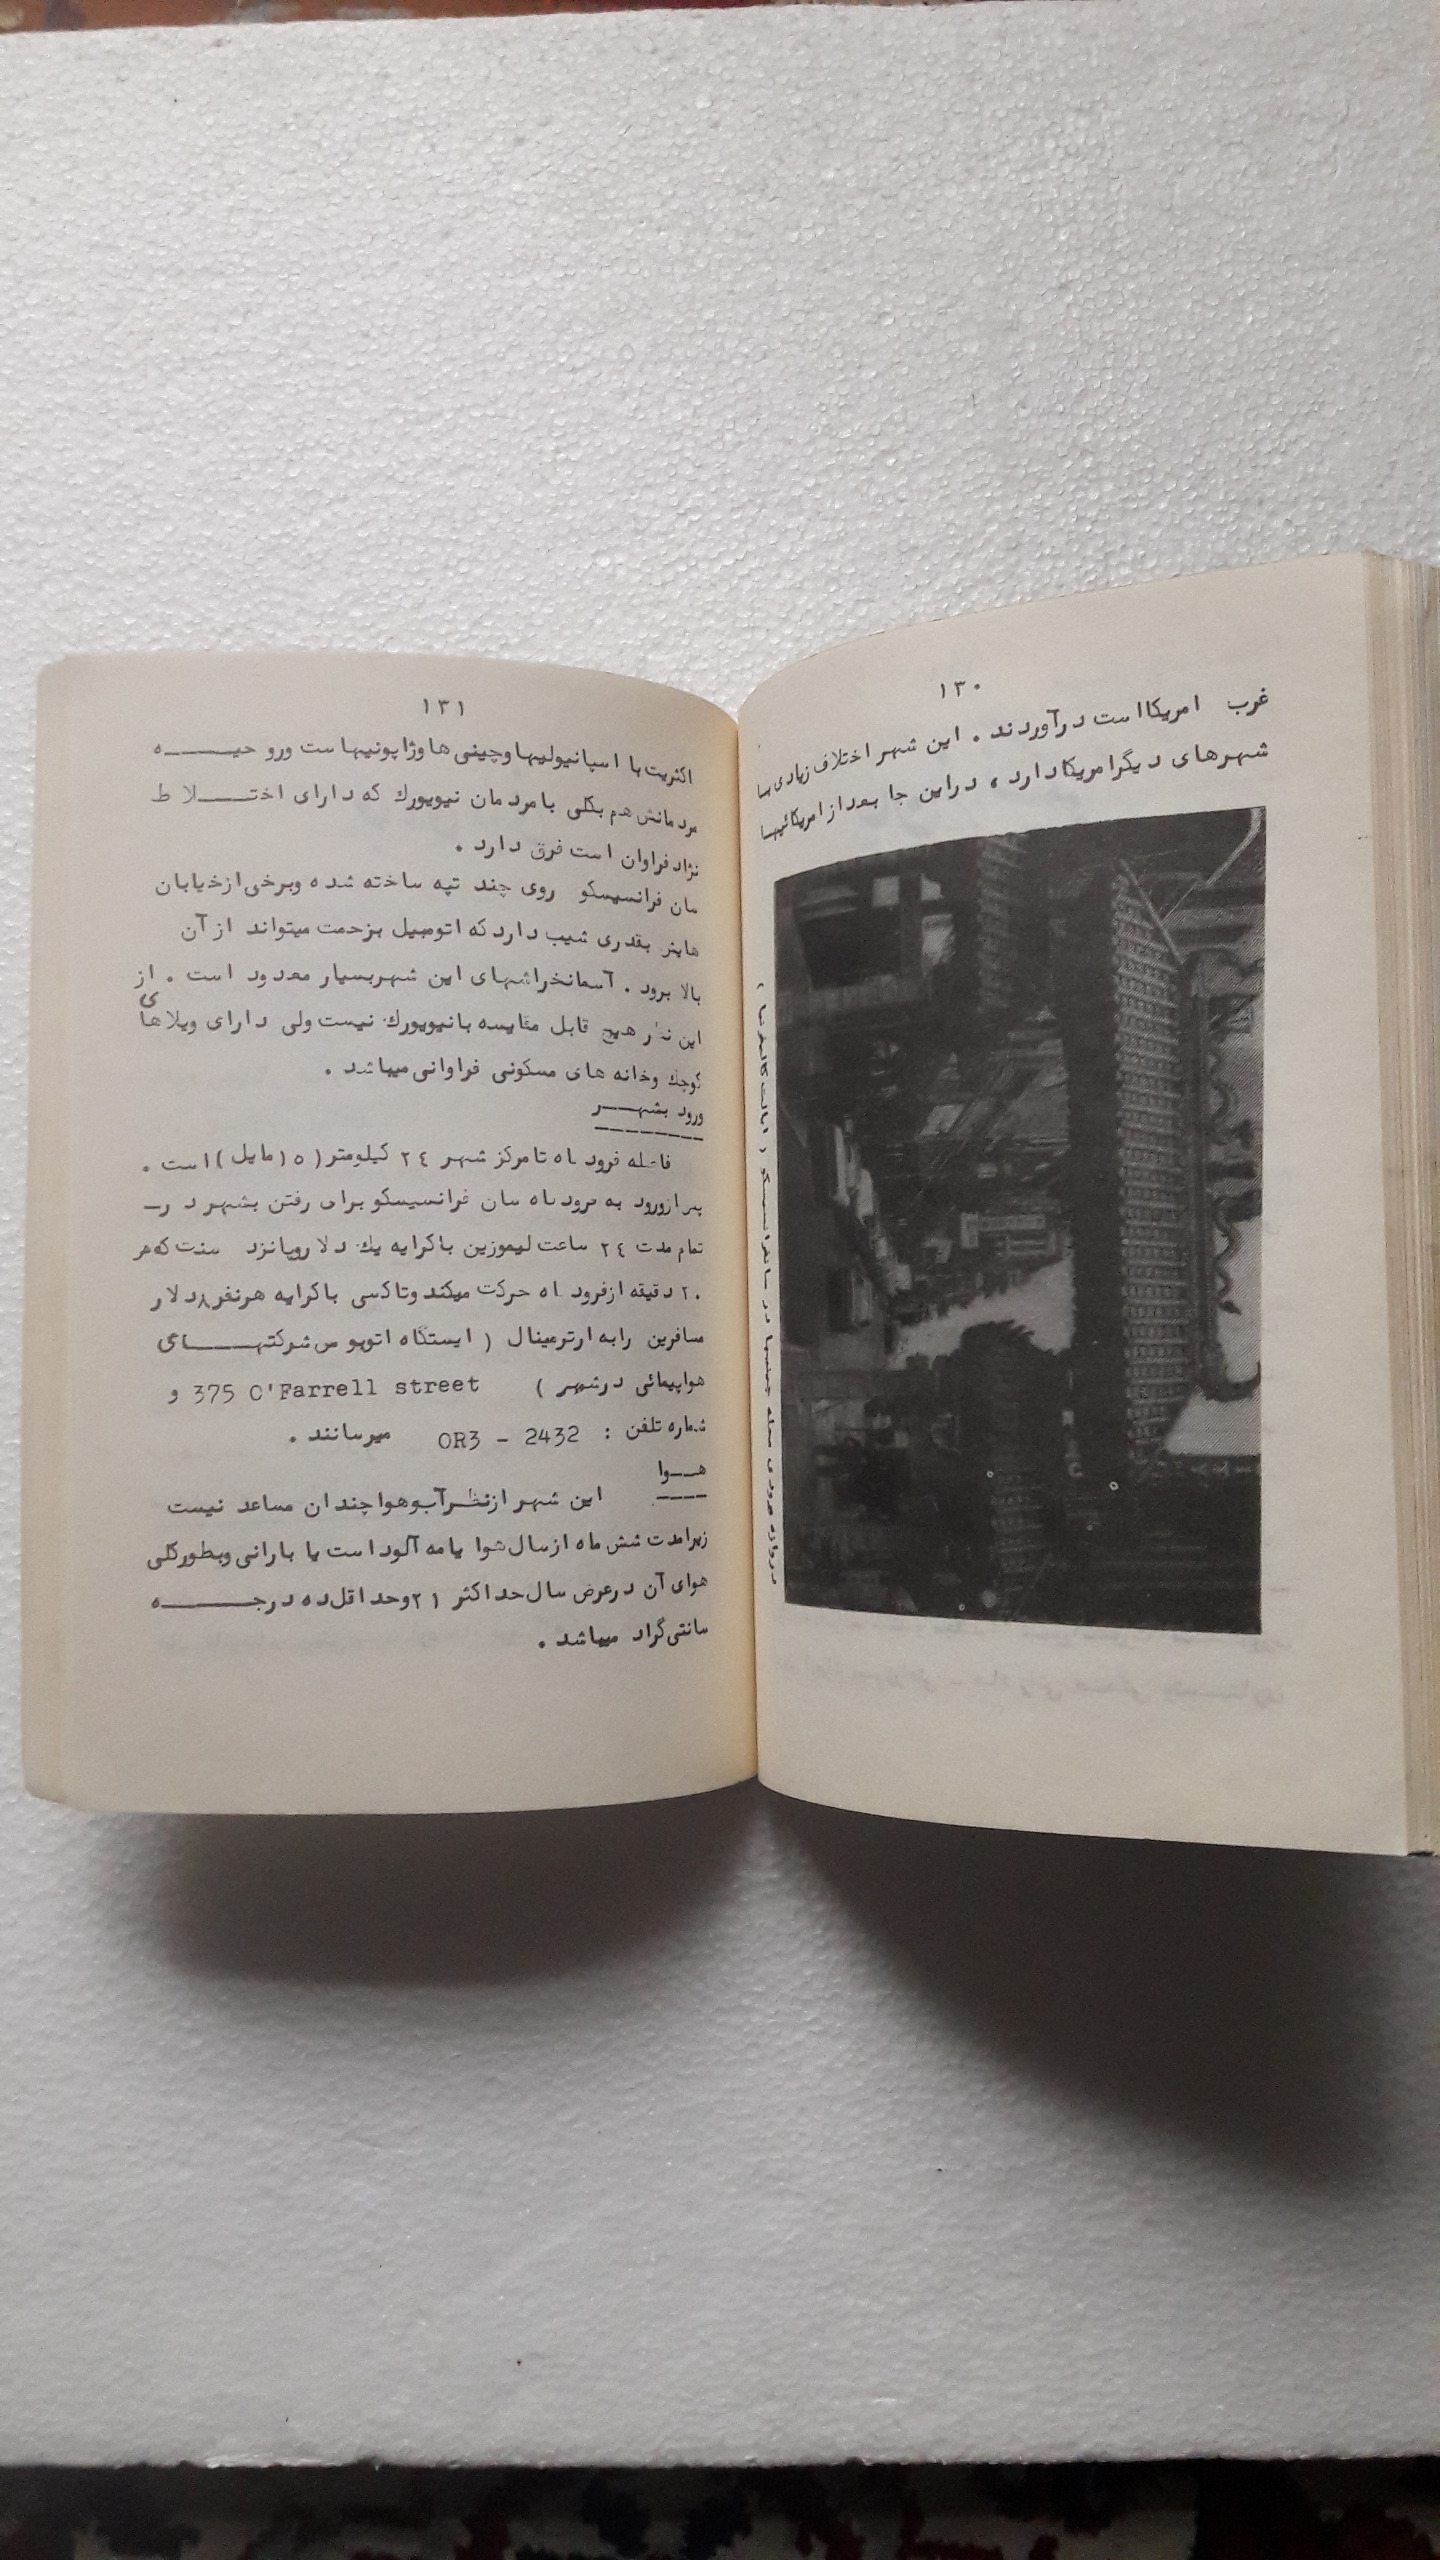 ۱۳۰
غرب امریکا است درآوردند . این شهر اختلاف زیادی با
شهرهای دیگر امریکا دارد ، در این جا بعد از امریکائیها
دروازه ورودی محله چینیها در سانفرانسیسکو ( ایالت کالیفرنیا )
۱۳۱
اکثریت با اسپانیولیها و چینی ها و ژاپونیهاست و روحیه
مردمانش هم بکلی با مردمان نیویورك که دارای اختلاط
نژاد فراوان است فرق دارد .
سان فرانسیسکو روی چند تپه ساخته شده و برخی از خیابان
هایش بقدری شیب دارد که اتومبیل بزحمت میتواند از آن
بالا برود . آسمانخراشهای این شهر بسیار معدود است . از
این نظر هیچ قابل مقایسه با نیویورك نیست ولی دارای ویلاهای
کوچك و خانه های مسکونی فراوانی میباشد .
ورود بشهر
فاصله فرودگاه تا مرکز شهر ۲٤ کیلومتر ( ۱۵ مایل ) است .
پس از ورود به فرودگاه سان فرانسیسکو برای رفتن بشهر در
تمام مدت ۲٤ ساعت لیموزین با کرایه یك دلار و پانزده سنت که هر
۲۰ دقیقه از فرودگاه حرکت میکند و تاکسی با کرایه هر نفر ۸ دلار
مسافرین را به ارترمینال ( ایستگاه اتوبوس شرکتهای
هواپیمائی در شهر ) 375 O'Farrell street و
شماره تلفن : OR3 - 2432 میرسانند .
هوا
این شهر از نظر آب و هوا چندان مساعد نیست
زیرا مدت شش ماه از سال هوا یا مه آلود است یا بارانی و بطور کلی
هوای آن در عرض سال حداکثر ۲۱ و حداقل ده درجه
سانتی گراد میباشد .